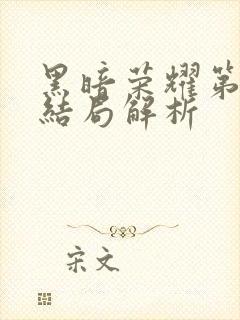 黑暗荣耀第
结局解析
宋文